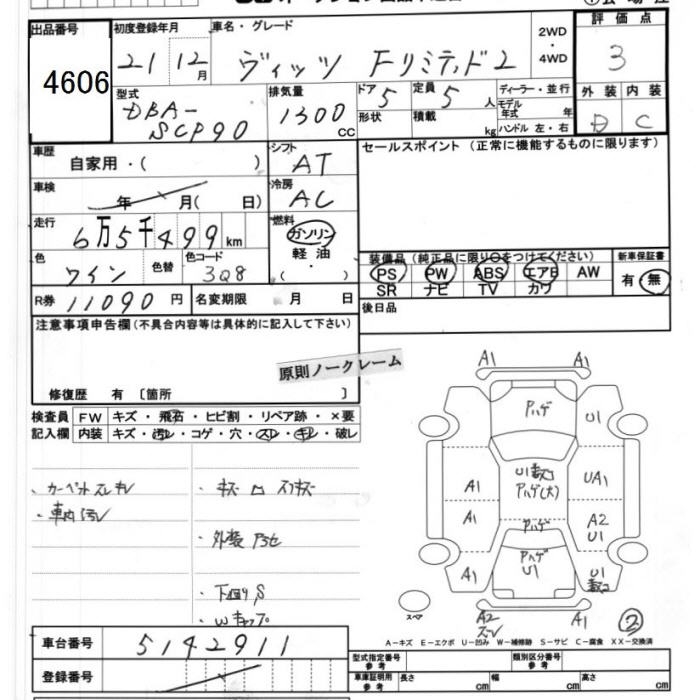 出品番号
4606
初度登録年月
21 12月
車名・グレード
ヴィッツ Fリミテッド2
2WD
・
4WD
評価点
3
外装 内装
D C
型式
DBA-
SCP90
排気量
1300 CC
ドア 5
定員 5 人
形状
積載 kg
ディーラー・並行
モデル年式 年
ハンドル 左・右
車歴
自家用・( )
車検
年 月( 日)
走行
6万5千499 km
色
ワイン
色替
色コード
3Q8
シフト
AT
冷房
AC
燃料
ガソリン
軽油
( ・ )
R券 11090円
名変期限 月 日
セールスポイント (正常に機能するものに限ります)
装備品(純正品に限り○をつけてください)
PS PW ABS エアB AW
SR ナビ TV カワ
新車保証書
有・無
後日品
注意事項申告欄(不具合内容等は具体的に記入して下さい)
原則ノークレーム
修復歴 有 〔箇所 〕
検査員
記入欄
FW キズ・飛石・ヒビ割・リペア跡・×要
内装 キズ・汚レ・コゲ・穴・スレ・キレ・破レ
・カーペットスレキレ
・車内汚レ
・外装
・下回りS
・Wキャップ
A1 A1
Aハゲ
U1
A1
U1
Aハゲ(大)
UA1
A1
Aハゲ
A2
U1
A1
Aハゲ
U1
U1
スペア
A2
A1
②
A-キズ E-エクボ U-凹み W-補修跡 S-サビ C-腐食 XX-交換済
車台番号 5142911
登録番号
型式指定番号
参考
類別区分番号
参考
車庫証明用
参考
長さ cm
幅 cm
高さ cm